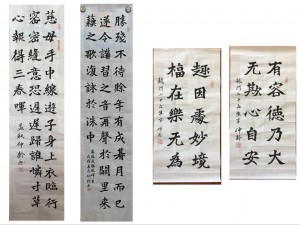 有容德乃大
无欺心自安
趣因處妙境
福在樂无為
勝殘不待賒年有成朞月而已
遂令講習之音再聲於闕里來
蘇之歌復詠於洙中
慈母手中線遊子身上衣臨行
密密縫意恐遲遲歸誰憐寸草
心報得三春暉